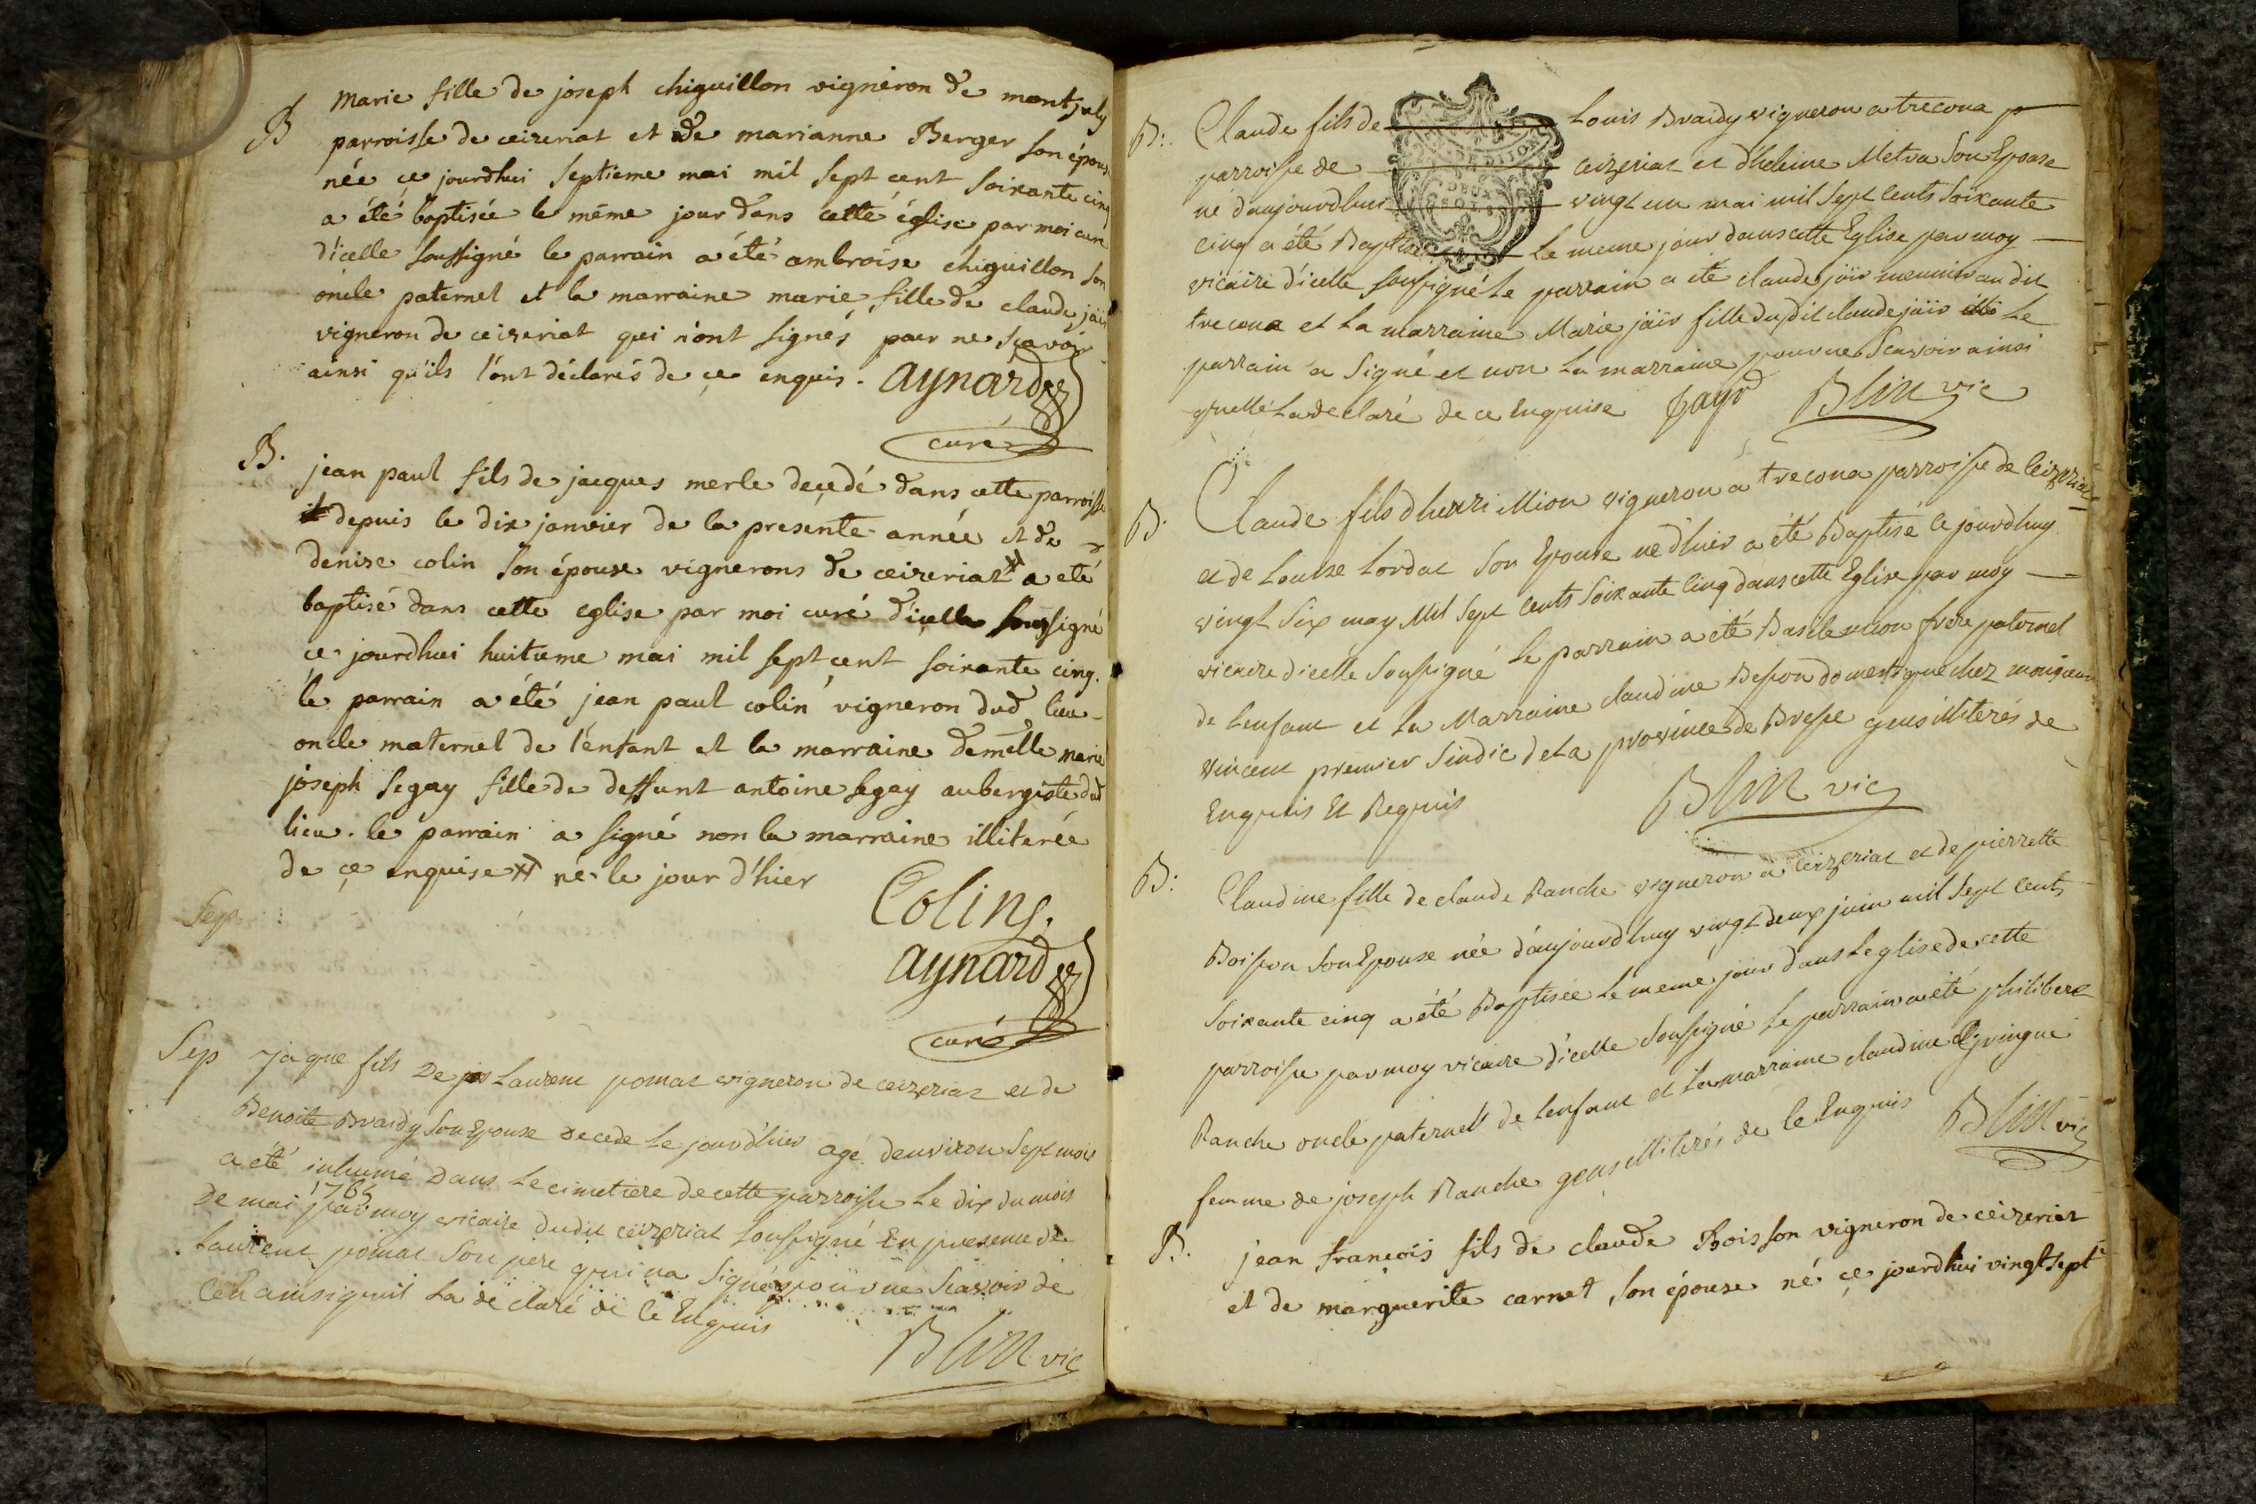 B
Marie fille de joseph chiguillon vigneron de montjuly
parroisse de ceizeriat et de marianne Berger son épouse
née ce jourdhui septieme mai mil sept cent soixante cinq
a été baptisée le même jour dans cette église par moi curé
d'icelle soussigné le parrain a été ambroise chiguillon son
oncle paternel et la marraine marie fille de claude jaïr
vigneron de ceizeriat qui n'ont signés pour ne sçavoir
ainsi qu'ils l'ont déclarés de ce enquis. aynard
curé
B.
jean paul fils de jacques merle decedé dans cette parroisse
depuis le dix janvier de la presente année et de
denize colin son épouse vignerons de ceizeriat # a eté
baptisé dans cette eglise par moi curé d'icelle soussigné
ce jourdhui huitieme mai mil sept cent soixante cinq.
le parrain a été jean paul colin vigneron dud lieu
oncle maternel de l'enfant et la marraine demelle marie
joseph segay fille de deffunt antoine segay aubergiste dud
lieu. le parrain a signé non la marraine illiterée
de ce enquise # né le jour d'hier
Colin
Sep
aynard
curé
Sep
jaque fils de Laurent pomat vigneron de ceizeriat et de
Benoite Braidy son Epouse decede le jourdhier agé denviron sept mois
a été inhumé dans le cimetiere de cette parroisse le dix du mois
de mai 1765 par moy vicaire dudit ceizeriat soussigné En presence de
Laurent pomat son pere qui na signé pour ne Scavoir de
ainsi quil la declaré de ce Enquis
Blin vic
B:
Claude fils de Louis Braidy vigneron a trecona p
parroisse de ceizeriat et d'heleine Metra Son Epouse
DEUX SOLS
né d'aujourdhui vingt un mai mil Sept Cents Soixante
cinq a été Baptisé le meme jour dans cette Eglise par moy
vicaire d'icelle soussigné le parrain a été claude jaïr meunier au dit
trecona et la marraine Marie jaïr fille dudit claude jaïr le
parrain a Signé et non la marraine pour ne Scavoir ainsi
quelle la declaré de ce Enquise Blin vic
B.
Claude fils d'henri Mion vigneron a trecona parroisse de Ceizeriat
et de Louise Lordat Son Epouse né d'hier a été Baptisé Ce jourdhuy
vingt Six may Mil Sept Cents Soixante Cinq dans cette Eglise par moy
vicaire d'icelle Soussigné le parrain a été Basile mion frere paternel
de Lenfant et la Marraine claudine domestique chez monsieur
vincent premier Sindic de la province de Bresse gens illiterés de
Enquis Et Requis
Blin vic
B:
Claudine fille de claude Ranche vigneron a Ceizeriat et de pierrette
Boisson Son Epouse née d'aujourdhuy vingt deux juin mil Sept Cents
Soixante cinq a été Baptisée le meme jour dans Leglise de cette
parroisse par moy vicaire d'icelle Soussigné le parrain a été philibert
Ranche oncle paternel de lenfant et la marraine claudine
femme de joseph Ranche gens illiterés de Ce Enquis
Blin vic
B.
jean françois fils de claude Boisson vigneron de ceizeriat
et de marguerite carnet son épouse né ce jourdhui vingt sept